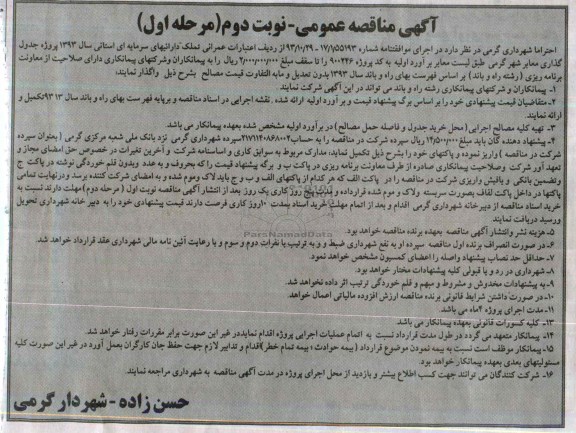 آگهی مناقصه عمومی - نوبت دوم (مرحله اول)
احتراما شهرداری گرمی در نظر دارد در اجرای موافقتنامه شماره ۱۷/۱/۵۵۱۹۳ - ۹۳/۱۰/۲۹ از ردیف اعتبارات عمرانی تملک دارائیهای سرمایه ای استانی سال ۱۳۹۳ پروژه جدول
گذاری معابر شهر گرمی طبق لیست معابر برآورد اولیه به کد پروژه ۹۰۰۲۴۶ را تا سقف مبلغ ۲/۰۰۰/۰۰۰/۰۰۰ ریال را به پیمانکاران وشرکتهای پیمانکاری دارای صلاحیت از معاونت
برنامه ریزی (رشته راه و باند) بر اساس فهرست بهای راه و باند سال ۱۳۹۳ بدون تعدیل و مابه التفاوت قیمت مصالح بشرح ذیل واگذار نمایند:
۱- پیمانکاران و شرکتهای پیمانکاری رشته راه و باند می تواند در این آگهی شرکت نمایند.
۲- متقاضیان قیمت پیشنهادی خود را بر اساس برگ پیشنهاد قیمت و بر آورد اولیه ارائه شده . نقشه اجرایی در اسناد مناقصه و برپایه فهرست بهای راه و باند سال ۹۳ ۱۳تکمیل و
ارائه نمایند.
۳- تهیه کلیه مصالح اجرایی (محل خرید جدول و فاصله حمل مصالح) در برآورد اولیه مشخص شده بعهده پیمانکار می باشد.
۴- پیشنهاد دهنده گان باید مبلغ ۱۴/۵۰۰/۰۰۰ ریال سپرده شرکت در مناقصه را به حساب ۲۱۷۱۱۴۰۸۶۸۰۰۲ سپرده شهرداری گرمی نزد بانک ملی شعبه مرکزی گرمی (بعنوان سپرده
شرکت در مناقصه) واریز نموده و پاکتهای خود را بشرح ذیل تکمیل نماید: مدارک مربوط به سوابق کاری و اساسنامه شرکت و آخرین تغیرات در خصوص حق امضای مجاز و
تعهد آور شرکت وصلاحیت پیمانکاری صادره از طرف معاونت برنامه ریزی در پاکت ب و برگه پیشنهاد قیمت را که بحروف و به عدد وبدون قلم خوردگی نوشته در پاکت ج
وتضمین بانکی و یافیش واریزی شرکت در مناقصه را در پاکت الف که هر کدام از پاکتهای الف و ب و ج باید لاک ومهر شده و به امضای شرکت کننده برسد ودرنهایت تمامی
پاکتها در داخل پاکت لفاف بصورت سربسته ولاک و موم شده قرارداده و تا پنج روز کاری یک روز بعد از انتشار آگهی مناقصه نوبت اول (مرحله دوم) مهلت دارند نسبت به
خرید اسناد مناقصه از دبیر خانه شهرداری گرمی اقدام و بعد از اتمام مهلت خرید اسناد بمدت ۱۰روز کاری فرصت دارند قیمت پیشنهادی خود را به دبیر خانه شهرداری تحویل
ورسید دریافت نمایند.
۵- هزینه نشر وانتشار آگهی مناقصه بعهده برنده مناقصه خواهد بود.
۶- در صورت انصراف برنده اول مناقصه سپرده او به نفع شهرداری ضبط و به ترتیب با نفرات دوم و سوم و با رعایت آئین نامه مالی شهرداری عقد قرارداد خواهد شد.
۷- حداقل حد نصاب پیشنهاد واصله را اعضای کمسیون مشخص خواهد نمود.
۸- شهرداری در رد و یا قبولی کلیه پیشنهادات مختار خواهد بود.
۹- به پیشنهادات مخدوش و مشروط و مبهم و قلم خوردگی ترتیب اثر داده نخواهد شد.
۱۰- در صورت داشتن شرایط قانونی برنده مناقصه ارزش افزوده مالیاتی اعمال خواهد.
۱۱- مدت اجرای پروژه ۳ماه می باشد.
۱۳- کلیه کسورات قانونی بعهده پیمانکار می باشد
۱۴- پیمانکار متعهد می گردد در طول مدت قرارداد نسبت به اتمام عملیات اجرایی پروژه اقدام نماید در غیر این صورت برابر مقررات رفتار خواهد شد.
۱۵- پیمانکار موظف است نسبت به بیمه نمودن موضوع قرارداد (بیمه حوادث ؛ بیمه تمام خطر) اقدام و تدابیر لازم جهت حفظ جان کارگران بعمل آورد در غیر این صورت کلیه
مسئولیتهای بعدی بعهده پیمانکار خواهد بود.
۱۶- شرکت کنندگان می توانند جهت کسب اطلاع بیشتر و بازدید از محل اجرای پروژه در مدت آگهی مناقصه به شهرداری مراجعه نمایند.
حسن زاده - شهردار گرمی
ParsNamadData